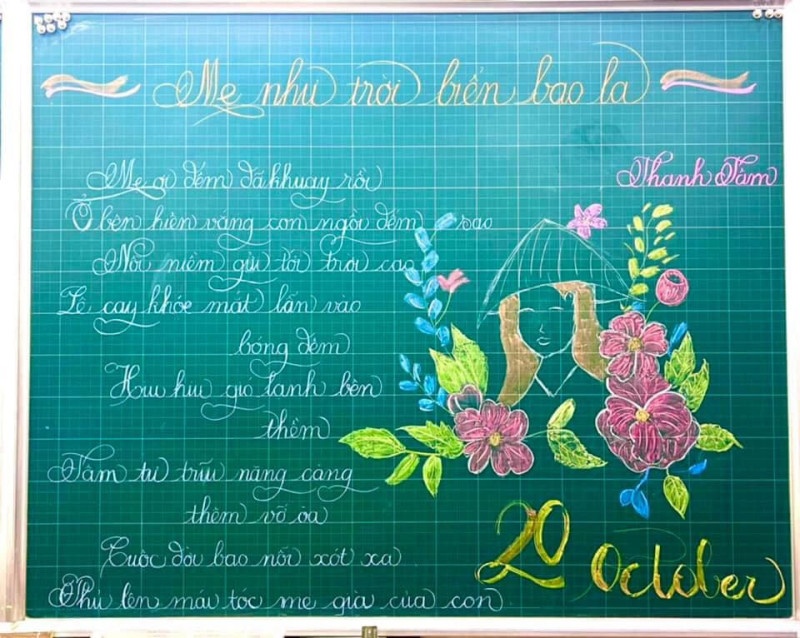 Mẹ như trời biển bao la
Thanh Tâm
Mẹ ơi đêm đã khuya rồi
Ở bên hiên vắng con ngồi đếm sao
Nỗi niềm gửi tới trời cao
Lệ cay khóe mắt lẫn vào
bóng đêm
Hưu hưu gió lạnh bên
thềm
Tâm tư trĩu nặng càng
thêm vỡ òa
Cuộc đời bao nỗi xót xa
Phủ lên máu tóc mẹ già của con
20 October